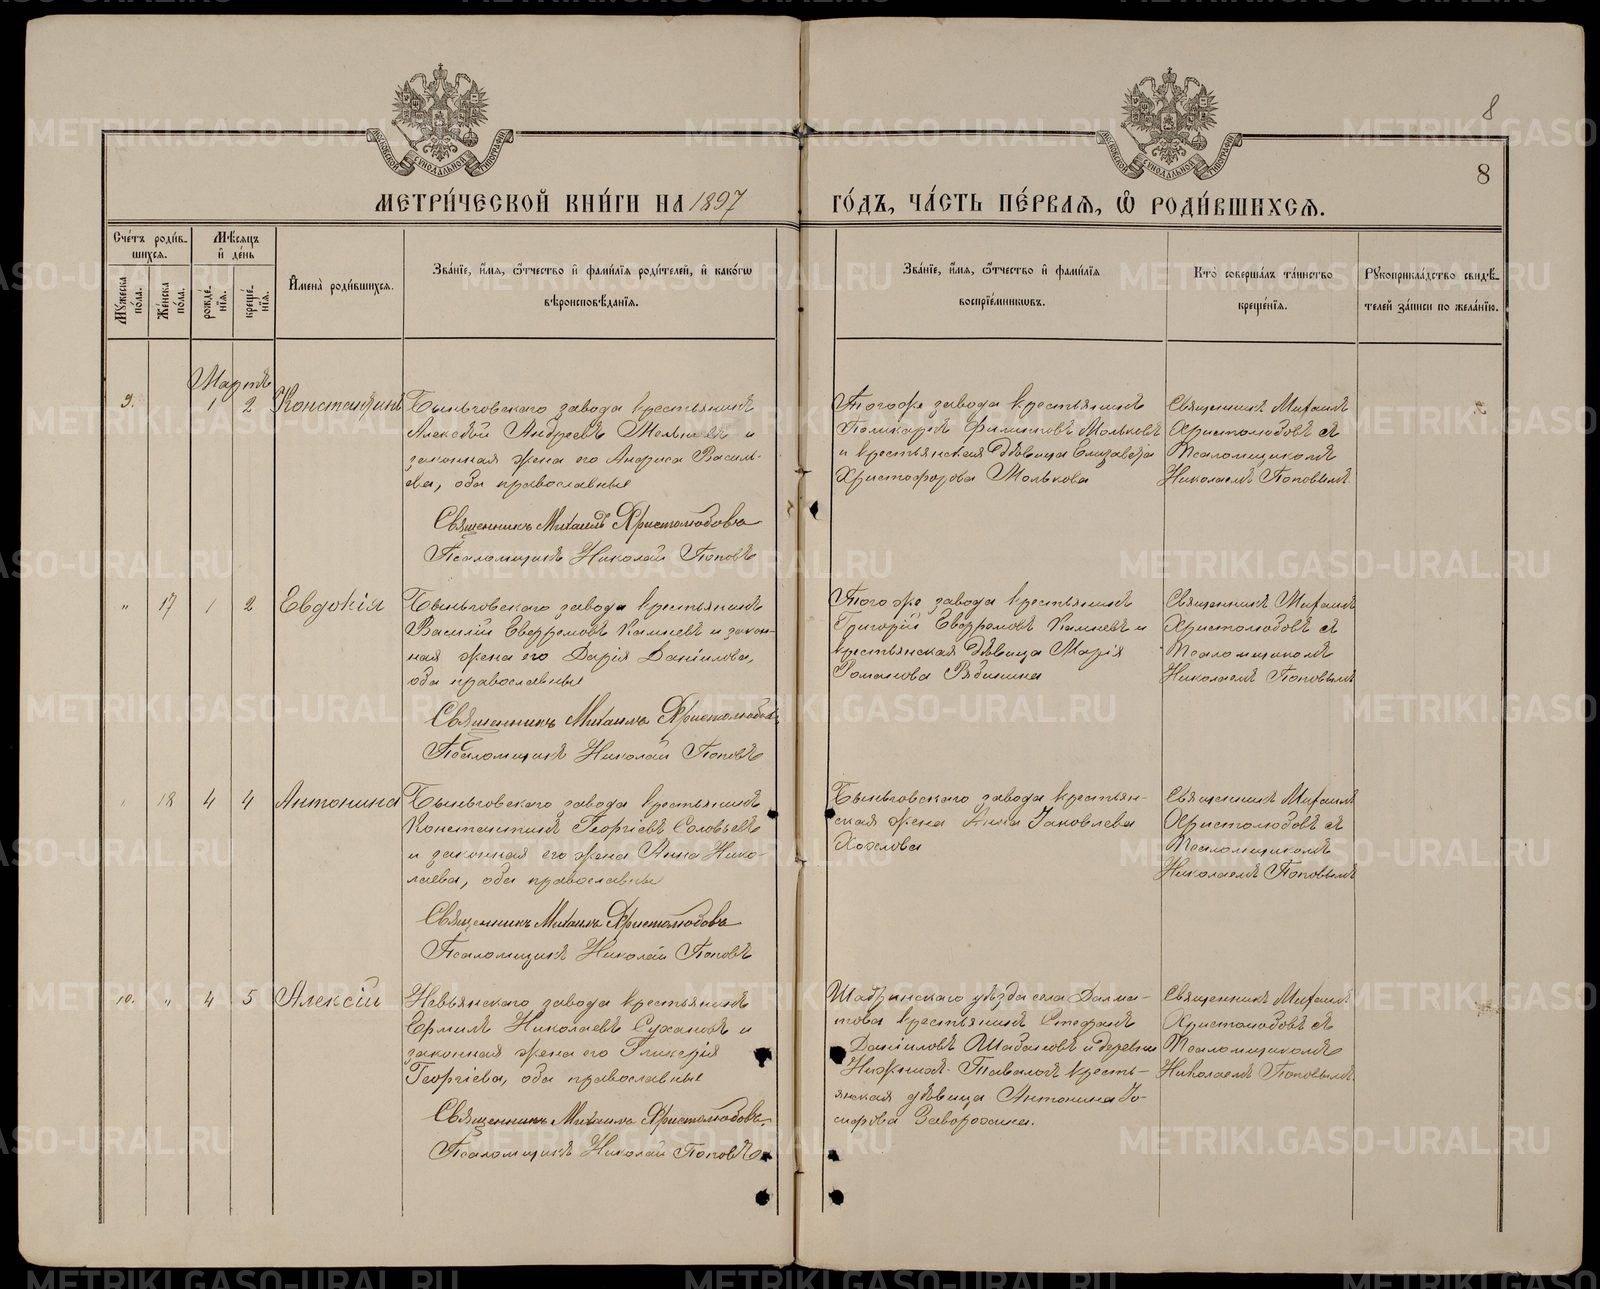 8
8
МЕТРИ́ЧЕСКОЙ КНИ́ГИ НА 1897 ГО́ДЪ, ЧА́СТЬ ПЕ́РВАЯ, Ѿ РОДИ́ВШИХСЯ.
Сче́тъ роди́в-
шихся.
Мѣ́сяцъ
и҆ де́нь
Му́жеска
по́ла.
Же́нска
по́ла.
рожде́-
нїя.
креще́-
нїя.
И҆мена̀ роди́вшихся.
Зва́нїе, и҆́мя, ѻ҆́тчество и҆ фами́лїя роди́телей, и҆ како́гѡ
вѣроисповѣ́данїя.
Зва́нїе, и҆́мя, ѻ҆́тчество и҆ фами́лїя
воспрїе́мникѡвъ.
Кто̀ соверша́лъ та́инство
креще́нїя.
Рукоприкла́дство свидѣ́-
телей за́писи по жела́нїю.
Мартъ
9. 1 2 Константинъ
Быньговскаго завода крестьянинъ
Алексѣй Андреевъ и
законная жена его Анфиса Василь-
ева, оба православные
Священникъ Михаилъ Христолюбовъ
Псаломщикъ Николай Поповъ
Того же завода крестьянинъ
Поликарпъ Филиповъ Мольковъ
и крестьянская дѣвица Елизавета
Христофорова Молькова
Священникъ Михаилъ
Христолюбовъ съ
Псаломщикомъ
Николаемъ Поповымъ
" 17 1 2 Евдокія
Быньговскаго завода крестьянинъ
Василій Евфремовъ и закон-
ная жена его Дарія Даніилова,
оба православные
Священникъ Михаилъ Христолюбовъ
Псаломщикъ Николай Поповъ
Того же завода крестьянинъ
Григорій Евфремовъ и
крестьянская дѣвица Марія
Романова Рябинина
Священникъ Михаилъ
Христолюбовъ съ
Псаломщикомъ
Николаемъ Поповымъ
" 18 4 4 Антонина
Быньговскаго завода крестьянинъ
Константинъ Георгіевъ Соловьевъ
и законная его жена Анна Нико-
лаева, оба православны
Священникъ Михаилъ Христолюбовъ
Псаломщикъ Николай Поповъ
Быньговскаго завода крестьян-
ская жена Анна Іаковлева
Хохлова
Священникъ Михаилъ
Христолюбовъ съ
Псаломщикомъ
Николаемъ Поповымъ
10. " 4 5 Алексій
Невьянскаго завода крестьянинъ
Ермилъ Николаевъ Сухановъ и
законная жена его Гликерія
Георгіева, оба православные
Священникъ Михаилъ Христолюбовъ
Псаломщикъ Николай Поповъ
Шадринскаго уѣзда села Далма-
това крестьянинъ Стефанъ
Даніиловъ Шабановъ и деревни
Нижнихъ Тавологъ кресть-
янская дѣвица Антонина Іо-
сифова Заворохина.
Священникъ Михаилъ
Христолюбовъ съ
Псаломщикомъ
Николаемъ Поповымъ
METRIKI.GASO-URAL.RU